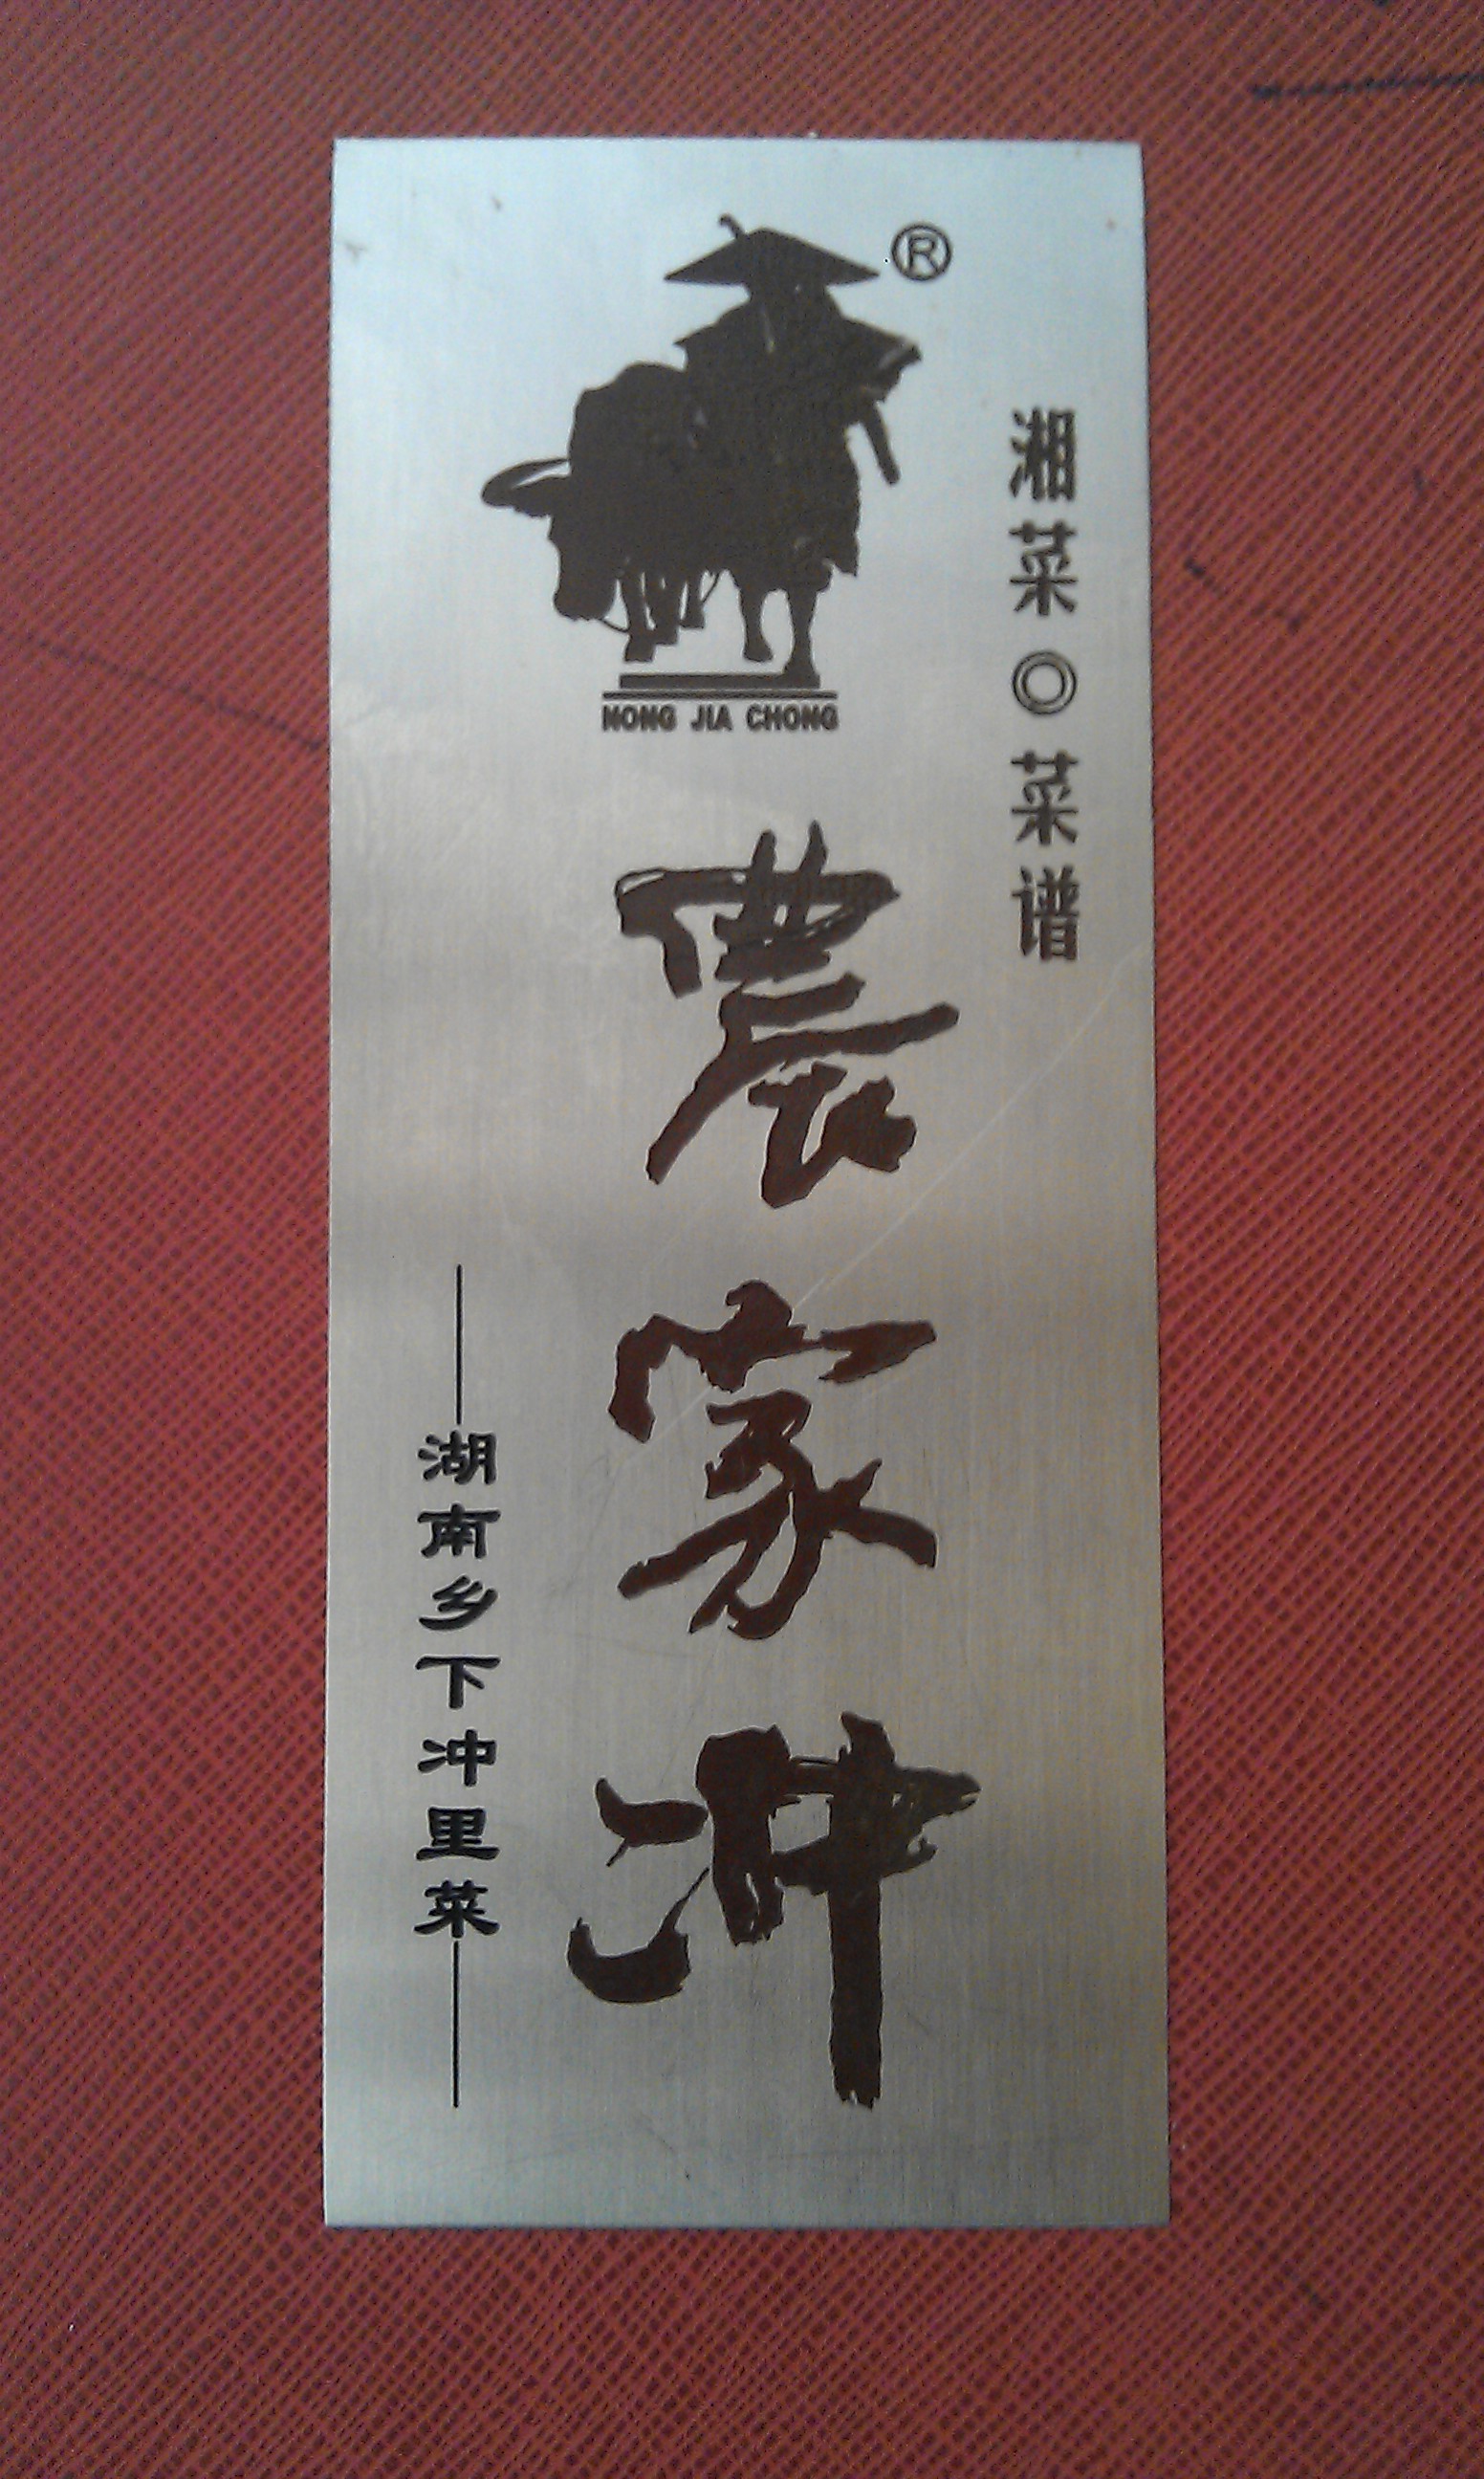 ®
湘菜◎菜谱
NONG JIA CHONG
農家冲
湖南乡下冲里菜